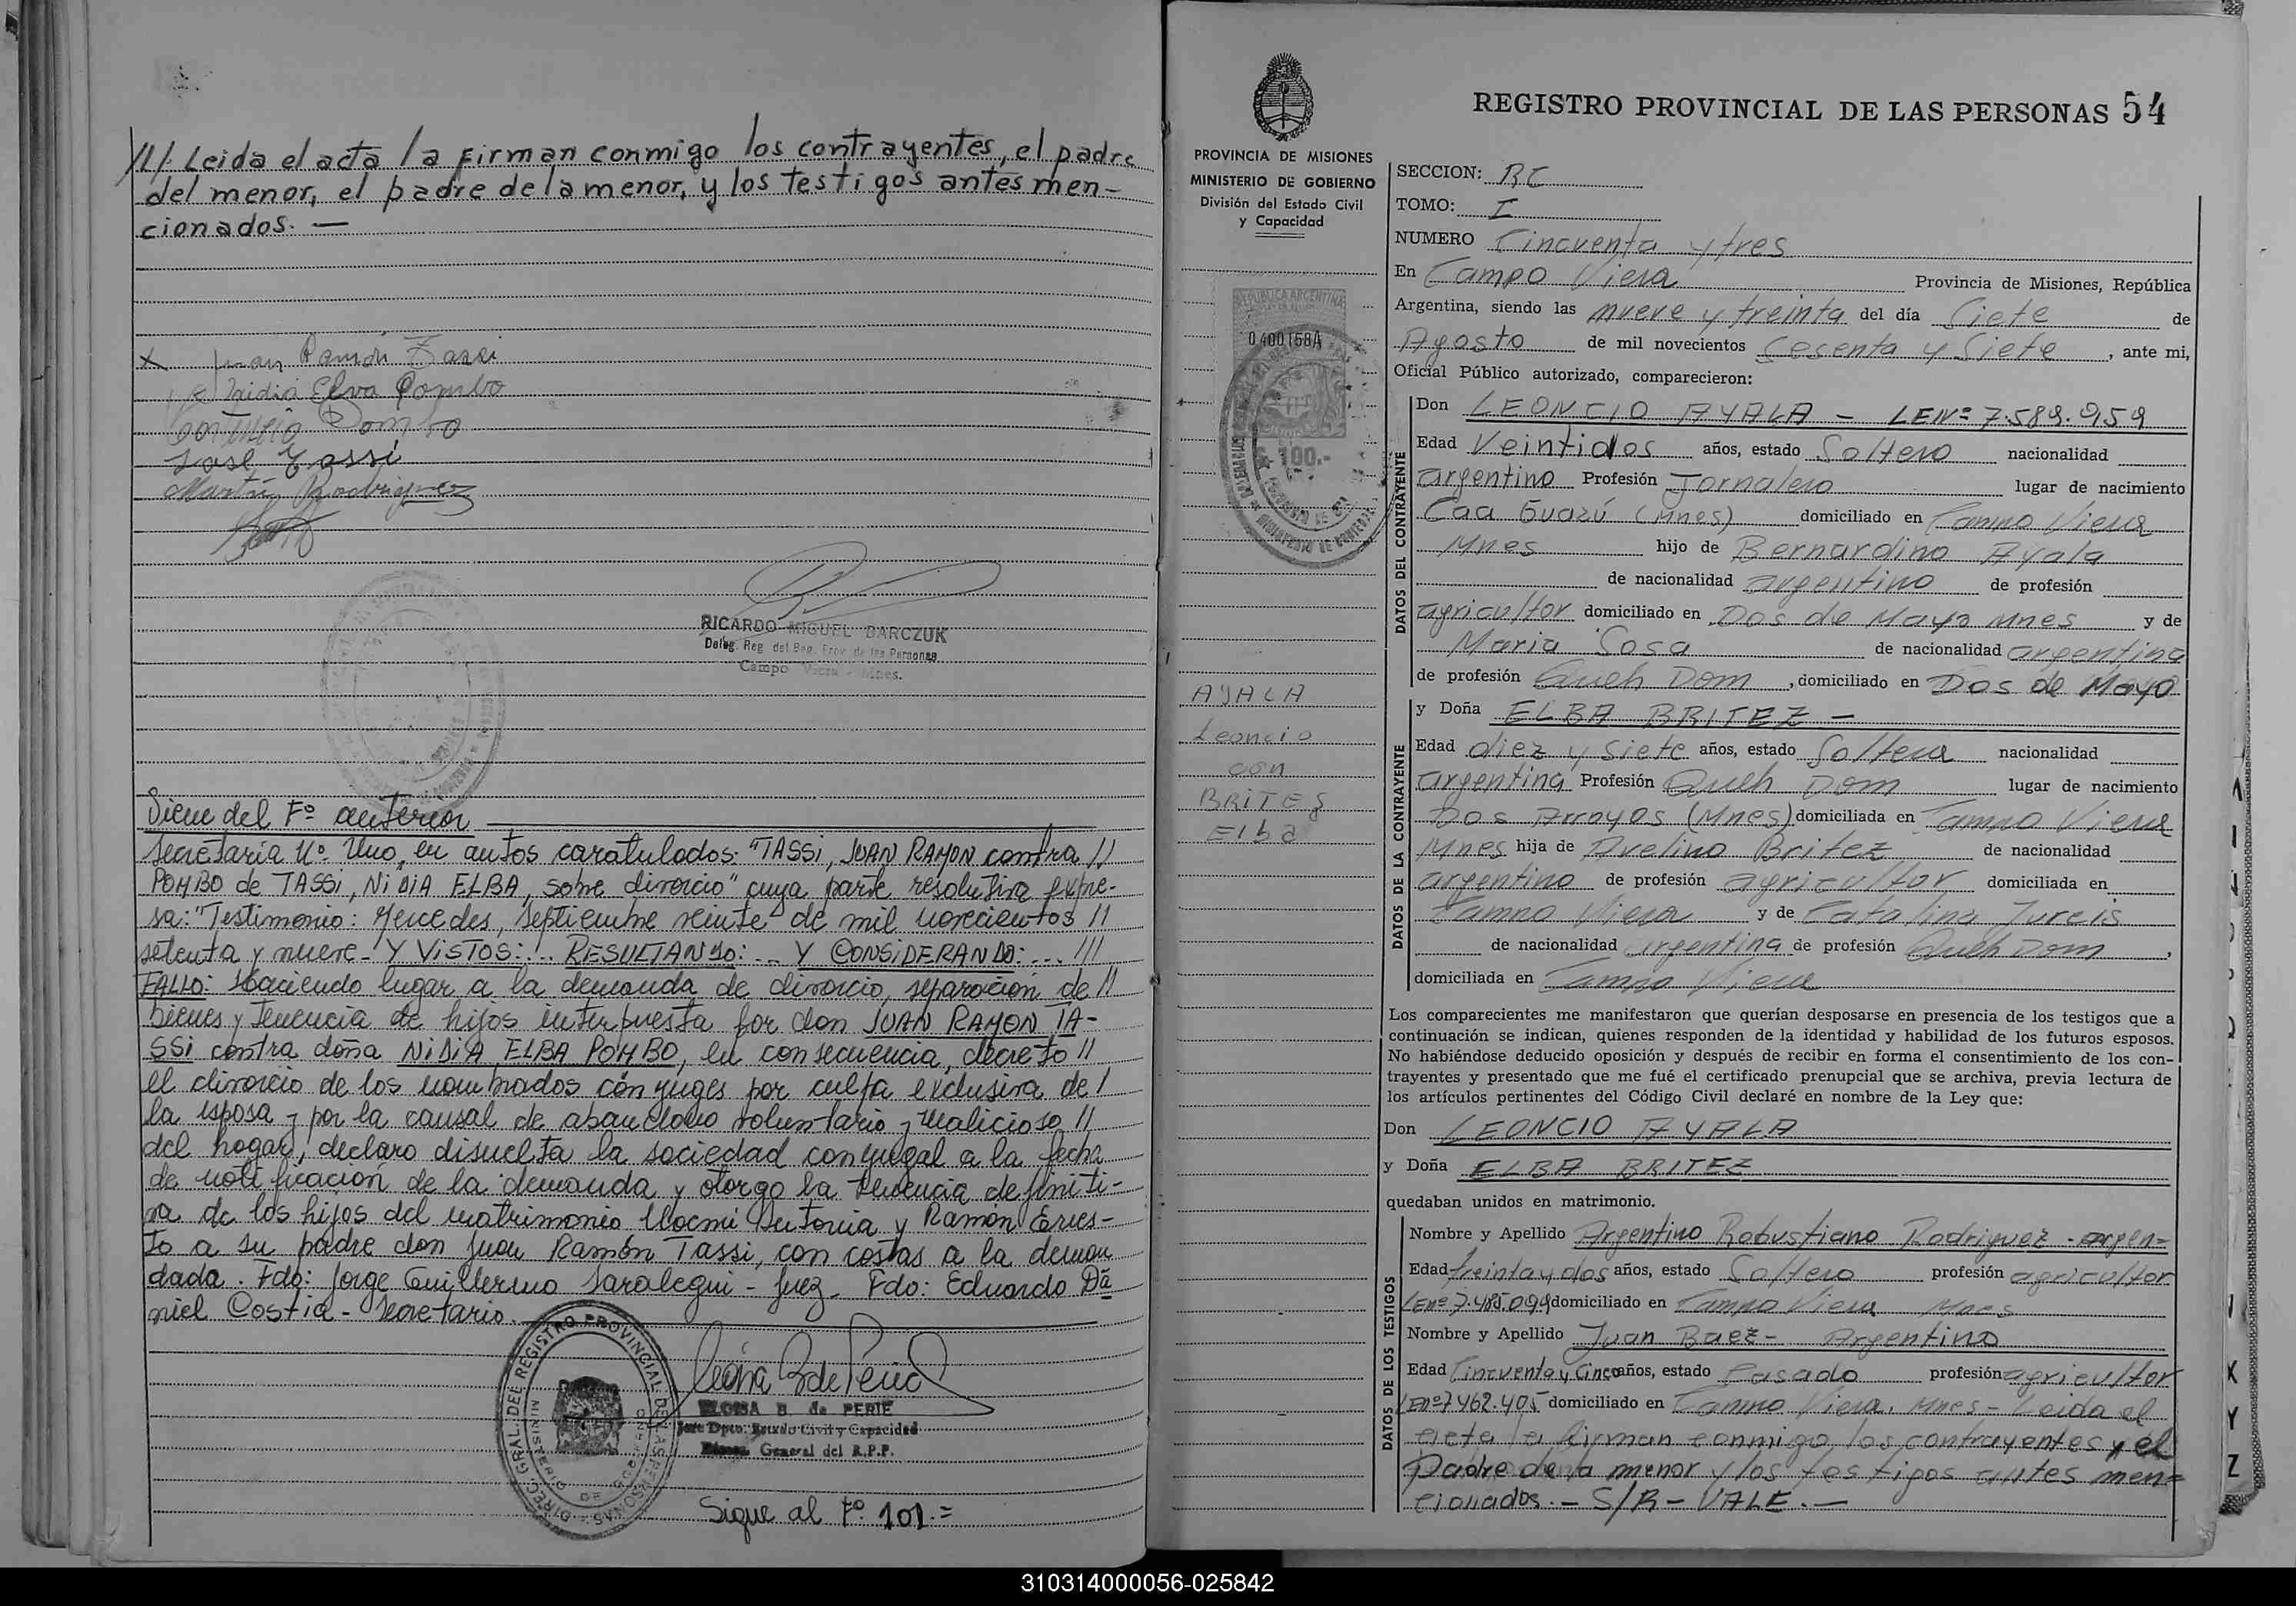 ///. Leida el acta la firman conmigo los contrayentes, el padre
del menor, el padre de la menor, y los testigos antes men-
cionados. —
x Juan Ramón Tassi
Nidia Elva Pombo
Pombo
José Tassi
Martín Rodriguez
RICARDO MIGUEL BARCZUK
Deleg. Reg. del Reg. Prov. de las Personas
Campo Viera - Mnes.
Viene del Fº anterior
Secretaría Nº Uno, en autos caratulados: "TASSI, JUAN RAMON contra //
POMBO de TASSI, NIDIA ELBA, sobre divorcio" cuya parte resolutiva expre-
sa: "Testimonio: Mercedes, septiembre veinte de mil novecientos //
setenta y nueve - Y VISTOS:... RESULTANDO: ... Y CONSIDERANDO: ... ///
FALLO: Haciendo lugar a la demanda de divorcio, separación de //
bienes y tenencia de hijos interpuesta por don JUAN RAMON TA-
SSI contra doña NIDIA ELBA POMBO, en consecuencia, decreto //
el divorcio de los nombrados cónyuges por culpa exclusiva de /
la esposa y por la causal de abandono voluntario y malicioso //
del hogar, declaro disuelta la sociedad conyugal a la fecha
de notificación de la demanda y otorgo la tenencia definiti-
va de los hijos del matrimonio Noemí Antonia y Ramón Ernes-
to a su padre don Juan Ramón Tassi, con costas a la deman
dada. Fdo: Jorge Guillermo Saralegui - Juez. Fdo: Eduardo Da
niel Costia - Secretario.
ELOISA B. de PERIE
Jefe Dpto. Estado Civil y Capacidad
Direc. General del R.P.P.
DIREC. GRAL. DEL REGISTRO PROVINCIAL DE LAS PERSONAS
MINISTERIO DE GOBIERNO
Sigue al Fº 101.=
REGISTRO PROVINCIAL DE LAS PERSONAS 54
PROVINCIA DE MISIONES
MINISTERIO DE GOBIERNO
División del Estado Civil
y Capacidad
REPUBLICA ARGENTINA
0400158A
100.-
AYALA
Leoncio
con
BRITES
Elba
SECCION: RC
TOMO: I
NUMERO Cincuenta y tres
En Campo Viera Provincia de Misiones, República
Argentina, siendo las nueve y treinta del día Siete de
Agosto de mil novecientos Sesenta y Siete, ante mi,
Oficial Público autorizado, comparecieron:
DATOS DEL CONTRAYENTE
Don LEONCIO AYALA — LENº 7.589.959
Edad Veintidos años, estado Soltero nacionalidad
argentino Profesión Jornalero lugar de nacimiento
Caa Guazú (Mnes) domiciliado en Campo Viera
Mnes hijo de Bernardino Ayala
de nacionalidad argentino de profesión
agricultor domiciliado en Dos de Mayo Mnes y de
Maria Sosa de nacionalidad argentina
de profesión Queh Dom, domiciliado en Dos de Mayo
DATOS DE LA CONTRAYENTE
y Doña ELBA BRITEZ —
Edad diez y siete años, estado Soltera nacionalidad
argentina Profesión Queh Dom lugar de nacimiento
Dos Arroyos (Mnes) domiciliada en Campo Viera
Mnes hija de Avelino Britez de nacionalidad
argentino de profesión agricultor domiciliada en
Campo Viera y de Catalina
de nacionalidad argentina de profesión Queh Dom,
domiciliada en Campo Viera
Los comparecientes me manifestaron que querían desposarse en presencia de los testigos que a
continuación se indican, quienes responden de la identidad y habilidad de los futuros esposos.
No habiéndose deducido oposición y después de recibir en forma el consentimiento de los con-
trayentes y presentado que me fué el certificado prenupcial que se archiva, previa lectura de
los artículos pertinentes del Código Civil declaré en nombre de la Ley que:
Don LEONCIO AYALA
y Doña ELBA BRITEZ
quedaban unidos en matrimonio.
DATOS DE LOS TESTIGOS
Nombre y Apellido Argentino Robustiano Rodriguez - argen=
Edad treinta y dos años, estado Soltero profesión agricultor
LEnº 7.485.099 domiciliado en Campo Viera Mnes
Nombre y Apellido Juan Baez - Argentino
Edad Cincuenta y Cinco años, estado Casado profesión agricultor
LEnº 7462.405 domiciliado en Campo Viera, Mnes - Leida el
acta la firman conmigo, los contrayentes y el
Padre de la menor y los testigos antes men=
cionados. — S/R - VALE. —
K
Y
Z
310314000056-025842